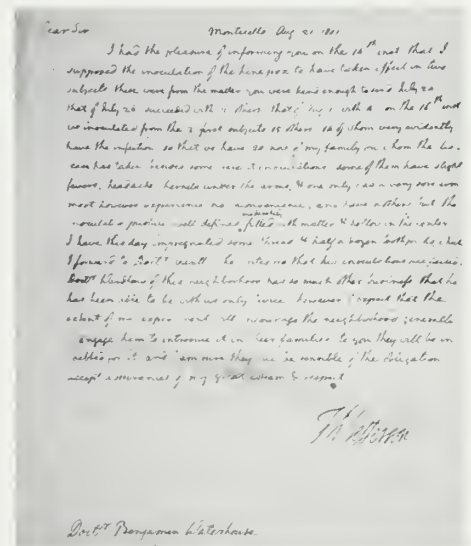 Dear Sir Monticello Aug 21 1801
I had the pleasure of informing you on the 14th inst that I
supposed the inoculation of the kine pox to have taken effect in two
subjects these were from the matter you were kind enough to send July 24
that of July 26 succeeded with 2 others that of Aug 1 with on the 16th inst
we inoculated from the 2 first subjects 15 others of whom very evidently
have the infection so that we have 20 now of my family on whom the dis
ease has taken besides some some of them have slight
fevers, headache kernels under the arms, & one only has a very sore arm
most however experience no inconvenience, and have nothing but the
inoculated pustule well defined, moderately filled with matter & hollow in the center
I have this day impregnated some thread & half a dozen toothpicks which
I forward to Doctr he me that his inoculations
Doctr Wardlaw of this neighborhood has so much other business that he
has been able to be with us only twice however I expect that the
extent of my experiment will encourage the neighborhood generally
engage him to introduce it in their families to you they will be in
debted for it and I am sure they will be sensible of the obligation
accept assurances of my great esteem & respect
Th: Jefferson
Doctr Benjamin Waterhouse